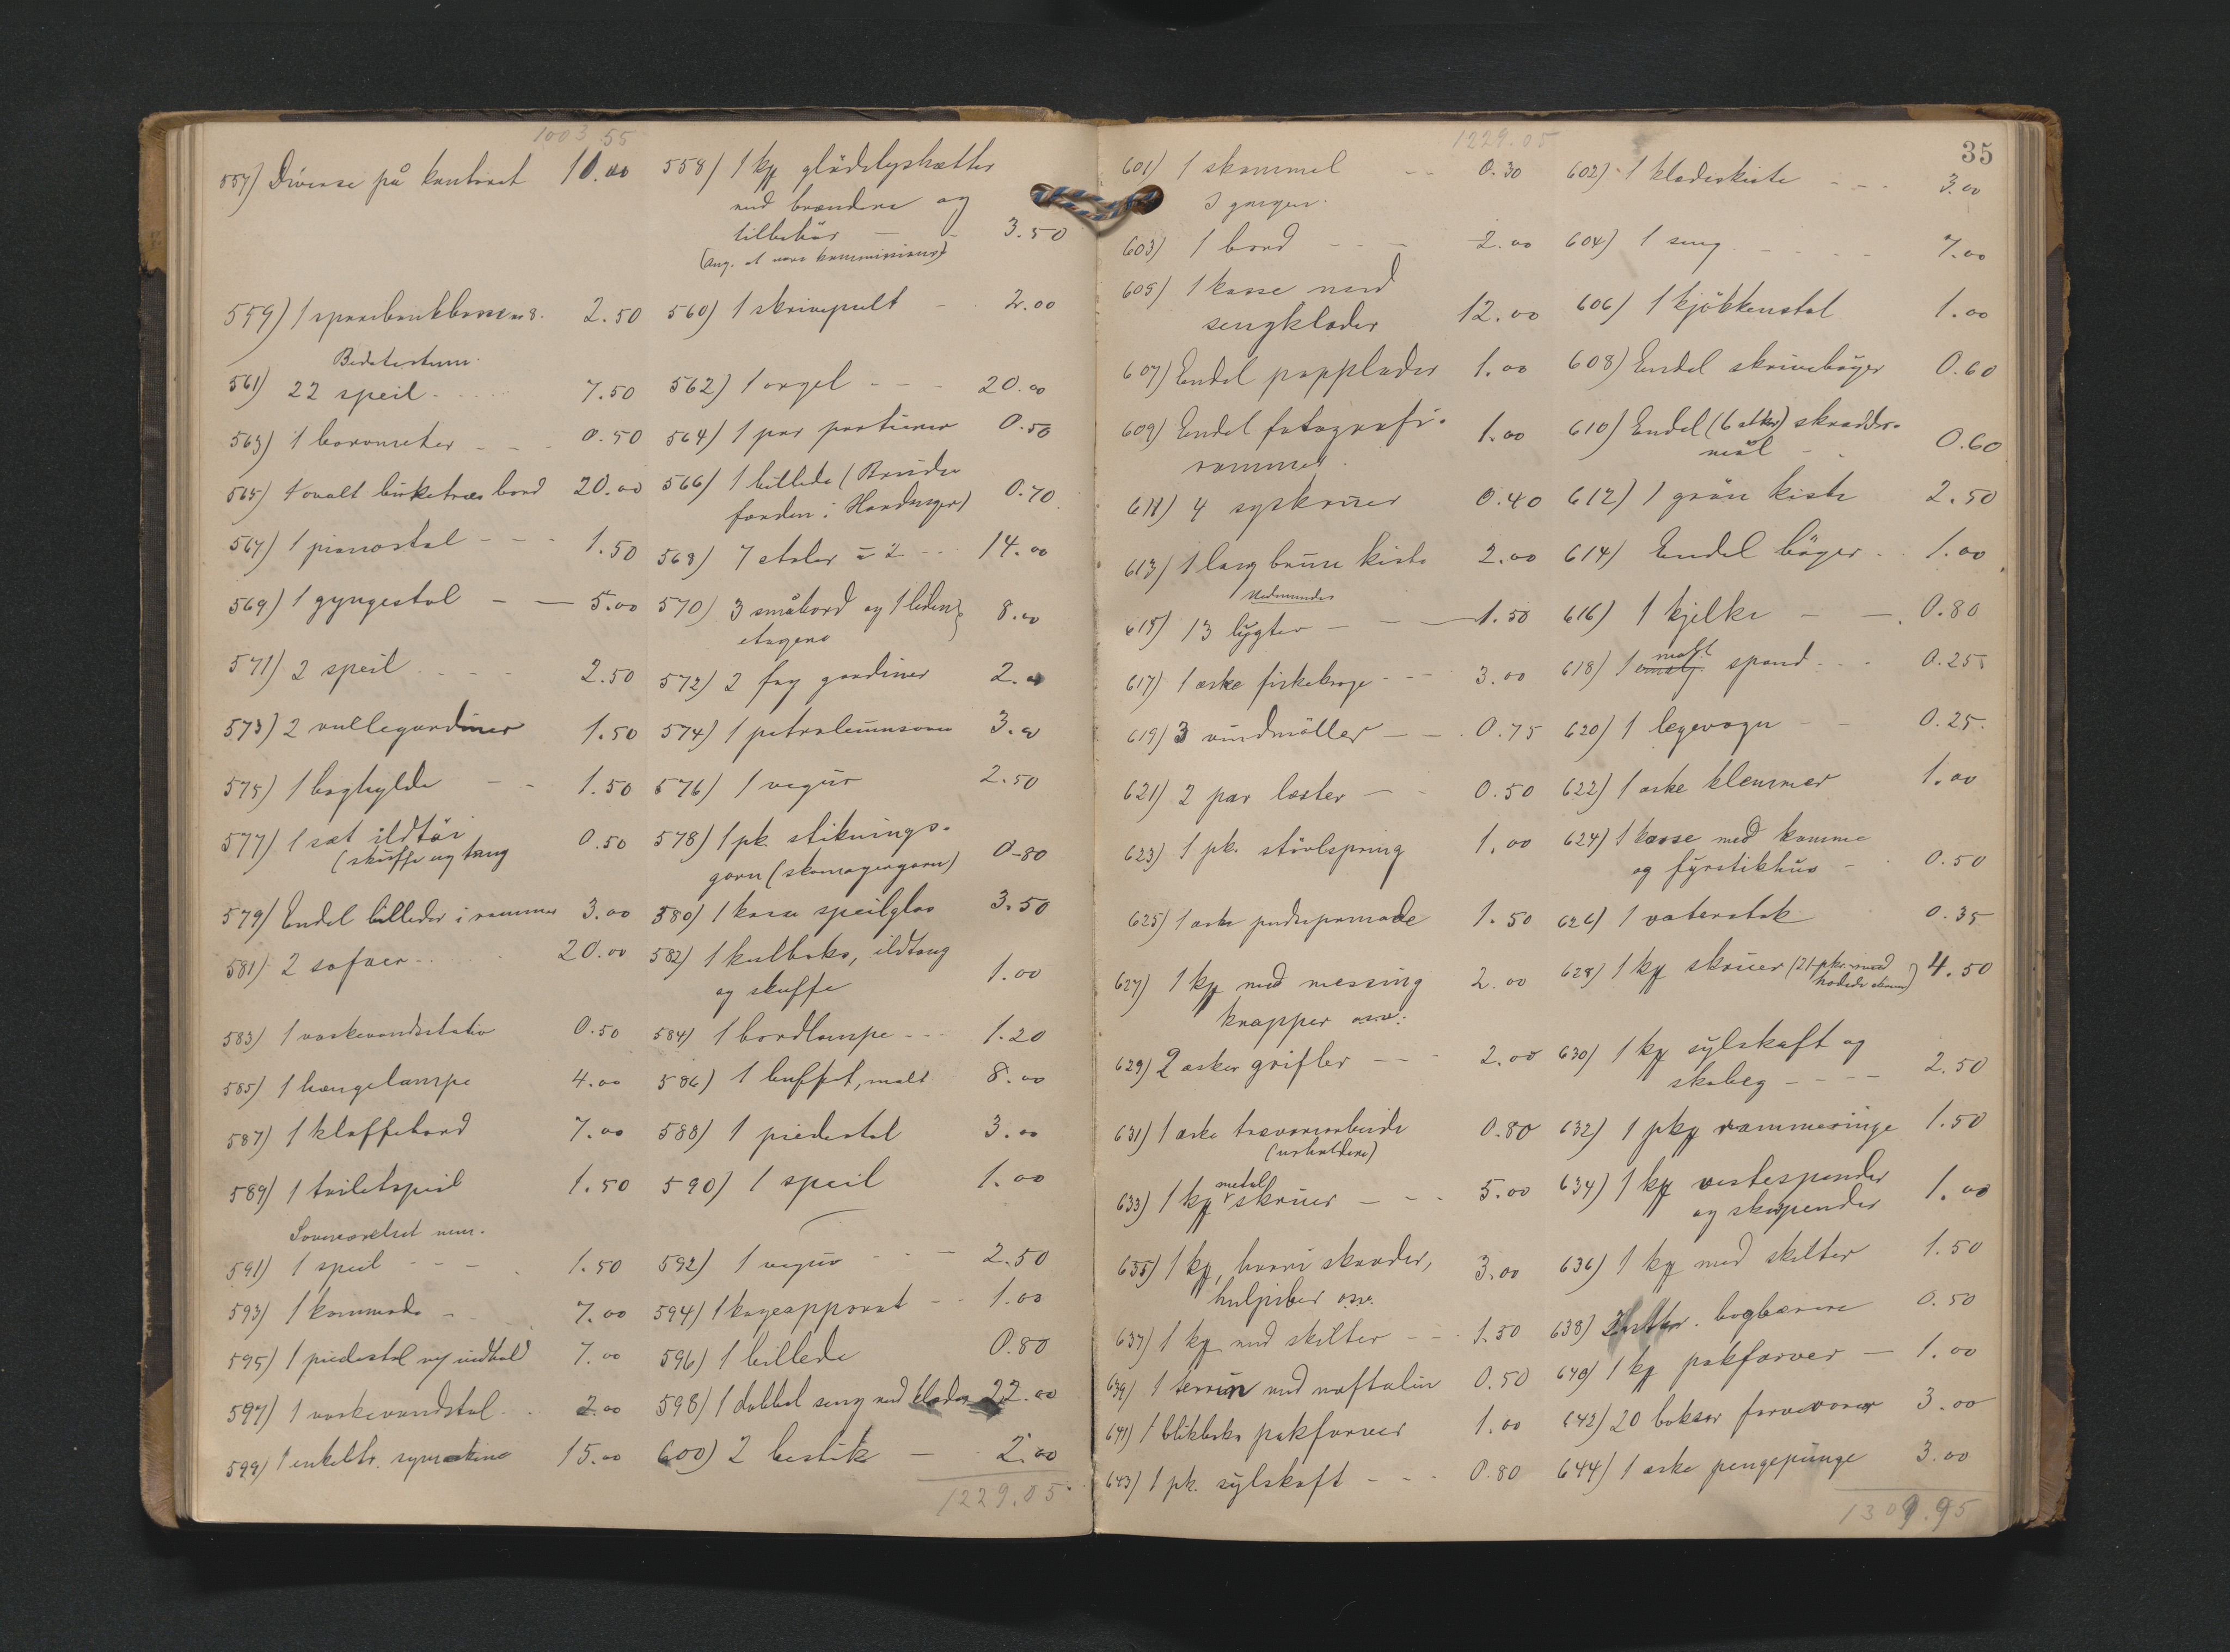 1003.55
557) Diverse på kontoret 10.00 558) 1 kg glödelyshætter
med brændere og
tilbehör — - 3.50
(ang. at være kommissions)
559) 1 sparebankbosse n 8. 2.50 560) 1 skrivepult - 2.00
Bedstestuen.
561) 22 speil 7.50 562) 1 orgel - - - 20.00
563) 1 barometer - - 0.50 564) 1 par portierer 0.50
565) 1 ovalt birketræs bord 20.00 566) 1 billede (Brude
færden i Hardanger) 0.70
567) 1 pianostol - - - 1.50 568) 7 stoler à 2 - - 14.00
569) 1 gyngestol - — 5.00 570) 3 småbord og 1 liden
etagere 8.00
571) 2 speil 2.50 572) 2 fag gardiner 2.00
573) 2 rullegardiner 1.50 574) 1 petroleumsovn 3.00
575) 1 boghylde - - 1.50 576) 1 vægur 2.50
577) 1 sæt ildtöi
(skuffe og tang 0.50 578) 1 pk. stiknings-
garn (skomagergarn) 0-80
579) Endel billeder i rammer 3.00 580) 1 kasse speilglas 3.50
581) 2 sofaer 20.00 582) 1 kulboks, ildtang
og skuffe 1.00
583) 1 vaskevandsstativ 0.50 584) 1 bordlampe - - 1.20
585) 1 hængelampe 4.00 586) 1 buffet, malt 8.00
587) 1 klaffebord 7.00 588) 1 piedestal 3.00
589) 1 toiletspeil 1.50 590) 1 speil 1.00
Soveværelset
591) 1 speil - - - 1.50 592) 1 vegur - - - 2.50
593) 1 kommode - 7.00 594) 1 kogeapparat - - 1.00
595) 1 piedestal m/ indhold 7.00 596) 1 billede 0.80
597) 1 vaskevandstol 2.00 598) 1 dobbel seng med klæder 22.00
599) 1 enkelth. symaskine 15.00 600) 2 bestik — 2.00
1229.05
1229.05
35
601) 1 skammel - - 0.30 602) 1 klædeskiste - - - 3.00
I gangen.
603) 1 bord - - - 2.00 604) 1 seng - - - - 7.00
605) 1 kasse med
sengklæder 12.00 606) 1 kjökkenstol 1.00
607) Endel papplader 1.00 608) Endel skrivebøger 0.60
609) Endel fotografi-
rammer. 1.00 610) Endel (6 stkr) skrædder-
mål - - 0.60
611) 4 syskruer 0.40 612) 1 grøn kiste 2.50
613) 1 lang brun kiste 2.00 614) Endel bøger 1.00
615) 13 lygter - - — 1.50 616) 1 kjelke - - 0.80
617) 1 æske fiskekroge - - - 3.00 618) 1 spand - - - 0.25
619) 3 vindmöller — - 0.75 620) 1 legevogn - - 0.25
621) 2 par læster — - 0.50 622) 1 æske klemmer 1.00
623) 1 pk. stövlspring 1.00 624) 1 kasse med kamme
og fyrstikhus - 0.50
625) 1 æske pudsepomade 1.50 626) 1 vaterstok 0.35
627) 1 kg med messing
knapper osv. 2.00 628) 1 kg skruer (21 pkr. rund
hodede skruer) 4.50
629) 2 æsker grifler - - - 2.00 630) 1 kg sylskaft og
skobeg - - - - 2.50
631) 1 æske trævarearbeide
(urholdere) 0.80 632) 1 pkg rammeringe 1.50
633) 1 kg metal skruer — - - 5.00 634) 1 kg vestespender
og skospender 1.00
635) 1 kg, hvori skeander,
hulpiber osv. 3.00 636) 1 kg med skilter 1.50
637) 1 kg med skilter - - 1.50 638) bogbærere 0.50
639) 1 terrin med naftalin 0.50 640) 1 kg pakfarver — 1.00
641) 1 blikboks pakfarver 1.00 642) 20 bokser farvevarer 3.00
643) 1 pk. sylskaft - - - 0.80 644) 1 æske pengepunge 3.00
1309.95